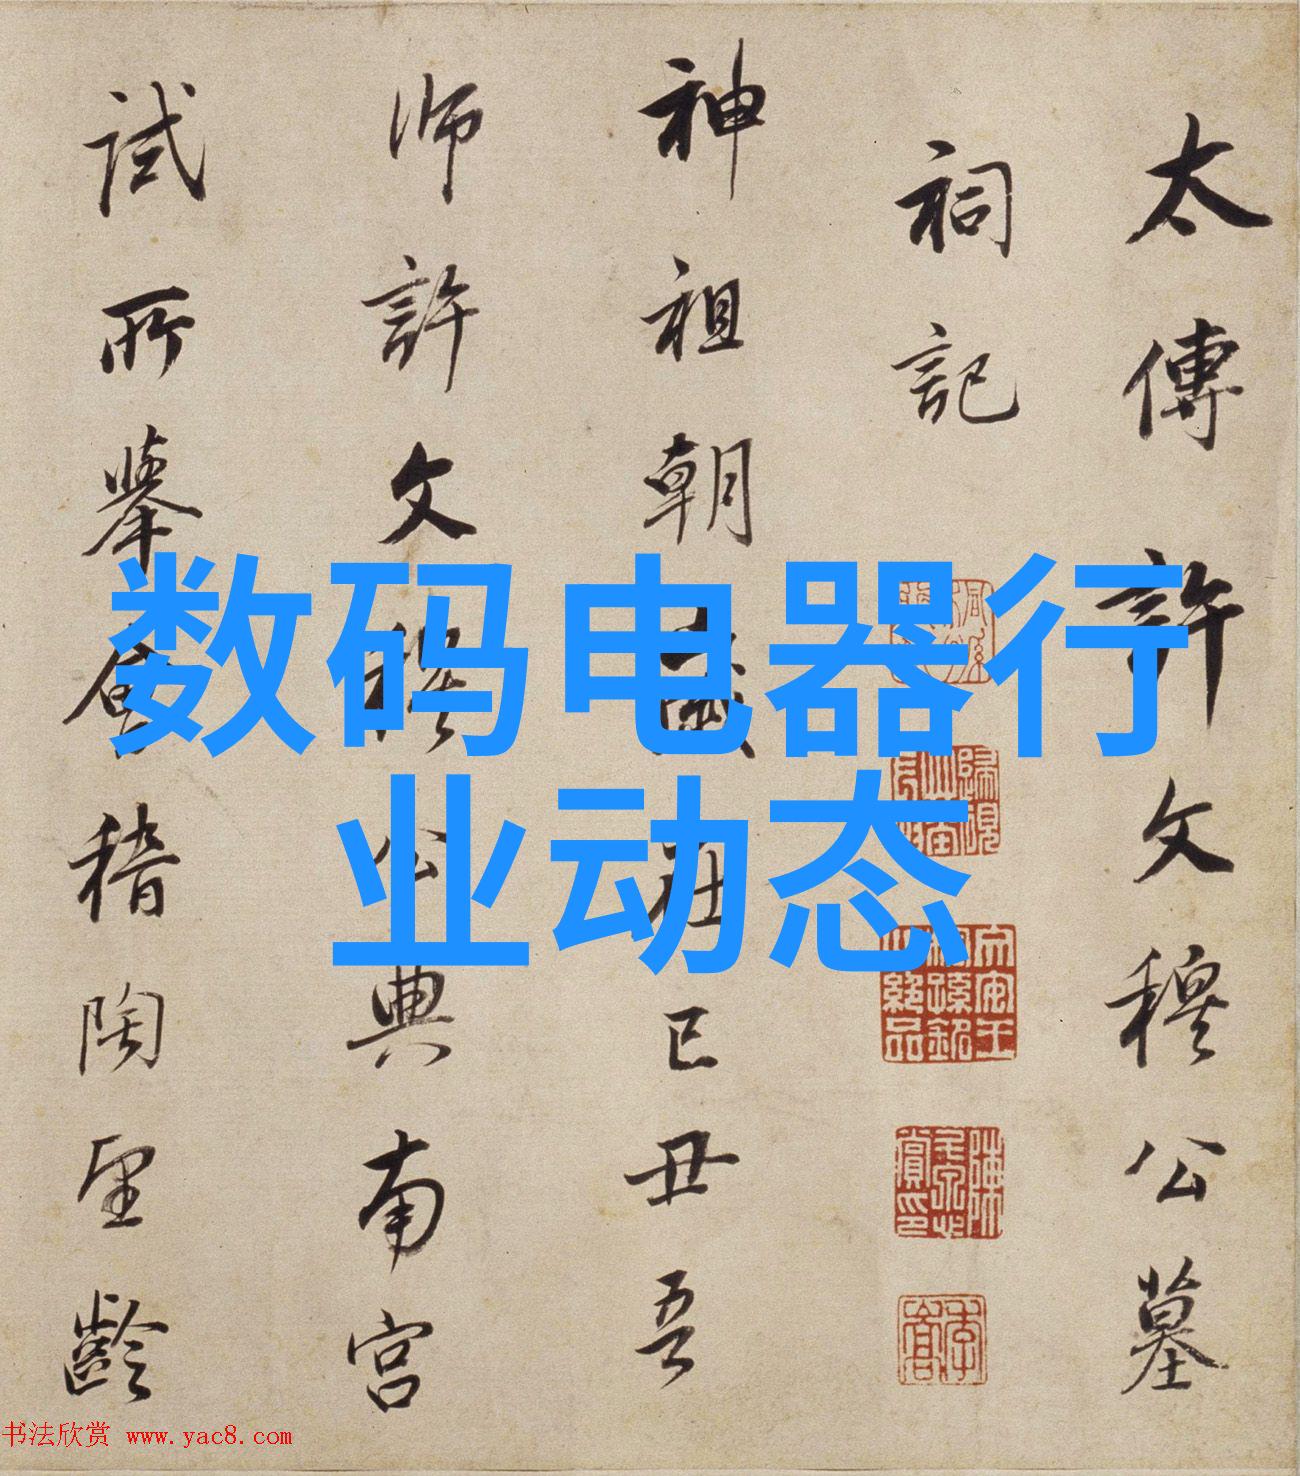 太傅許文穆公墓
祠記
神祖朝歲在己丑吾
師許文穆公典南宫
試所舉會稽陶望齡
数码电器行
业动态
书法欣赏 www.yac8.com